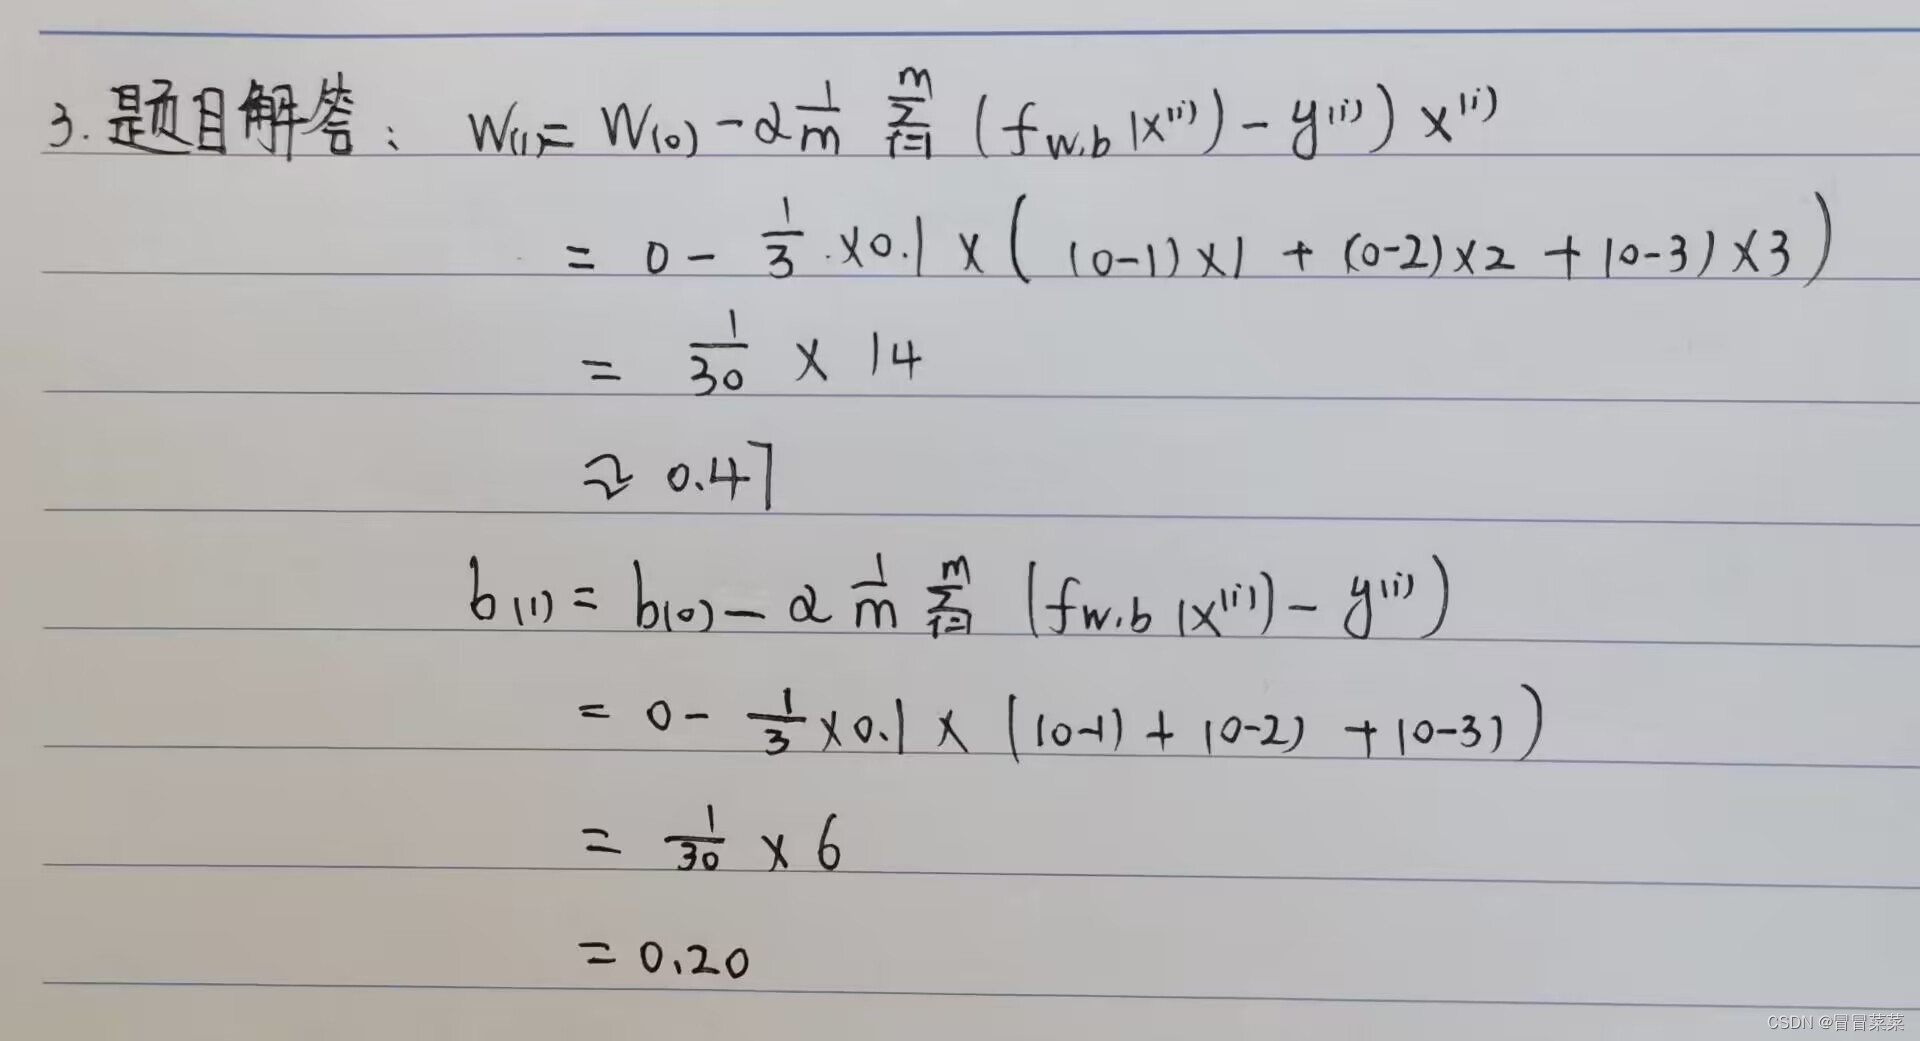 3. 题目解答: W(1) = W(0) - α 1/m Σ_{i=1}^{m} (f_{w,b}(x^{(i)}) - y^{(i)}) x^{(i)}
= 0 - 1/3 · × 0.1 × ((0-1)×1 + (0-2)×2 + (0-3)×3)
= 1/30 × 14
≈ 0.47
b(1) = b(0) - α 1/m Σ_{i=1}^{m} (f_{w,b}(x^{(i)}) - y^{(i)})
= 0 - 1/3 × 0.1 × ((0-1) + (0-2) + (0-3))
= 1/30 × 6
= 0.20
CSDN @冒冒菜菜